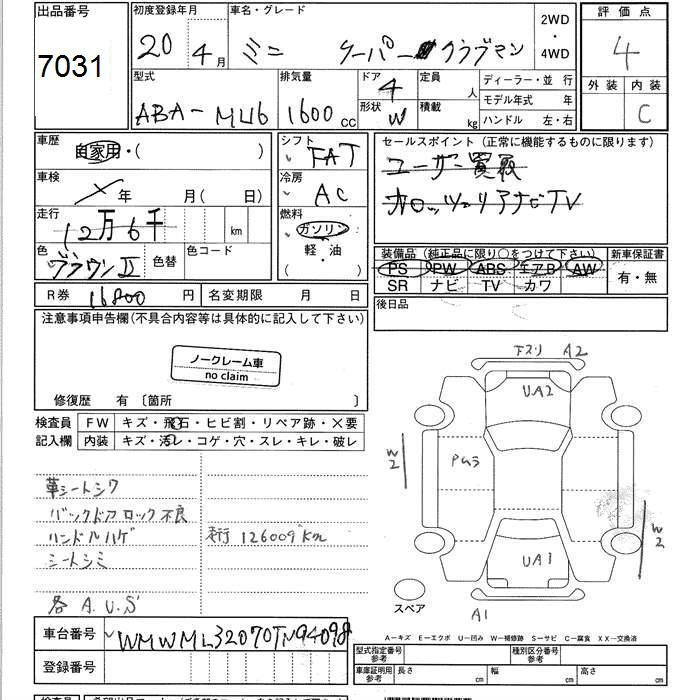 出品番号
7031
初度登録年月
20 4月
車名・グレード
ミニ クーパー クラブマン
2WD
・
4WD
評価点
4
外装 内装
C
型式
ABA-ML16
排気量
1600 CC
ドア
4
形状
W
定員
人
積載
kg
ディーラー・並 行
モデル年式 年
ハンドル 左・右
車歴
自家用・( )
車検
年 月( 日)
走行
12万6千
km
色
ブラウンII
色替
色コード
シフト
FAT
冷房
AC
燃料
ガソリン
軽・油
セールスポイント (正常に機能するものに限ります)
ユーザー買取
カロッツェリアナビTV
装備品 (純正品に限り○をつけて下さい)
PS PW ABS エアB AW
SR ナビ TV カワ
新車保証書
有・無
R券 16800 円
名変期限 月 日
後日品
注意事項申告欄(不具合内容等は具体的に記入して下さい)
ノークレーム車
no claim
修復歴 有 〔箇所 〕
検査員
記入欄
FW キズ・飛石・ヒビ割・リペア跡・×要
内装 キズ・汚レ・コゲ・穴・スレ・キレ・破レ
革シートシワ
バックドアロック不良
ハンドルハゲ
シートシミ
各 A.U.S
走行 126009Km
下スリ A2
UA2
W2
Pムラ
W2
UA1
A1
スペア
A-キズ E-エクボ U-凹み W-補修跡 S-サビ C-腐食 XX-交換済
車台番号
WMWML32070TN94098
登録番号
型式指定番号
参考
種別区分番号
参考
車庫証明用
参考
長さ cm
幅 cm
高さ cm